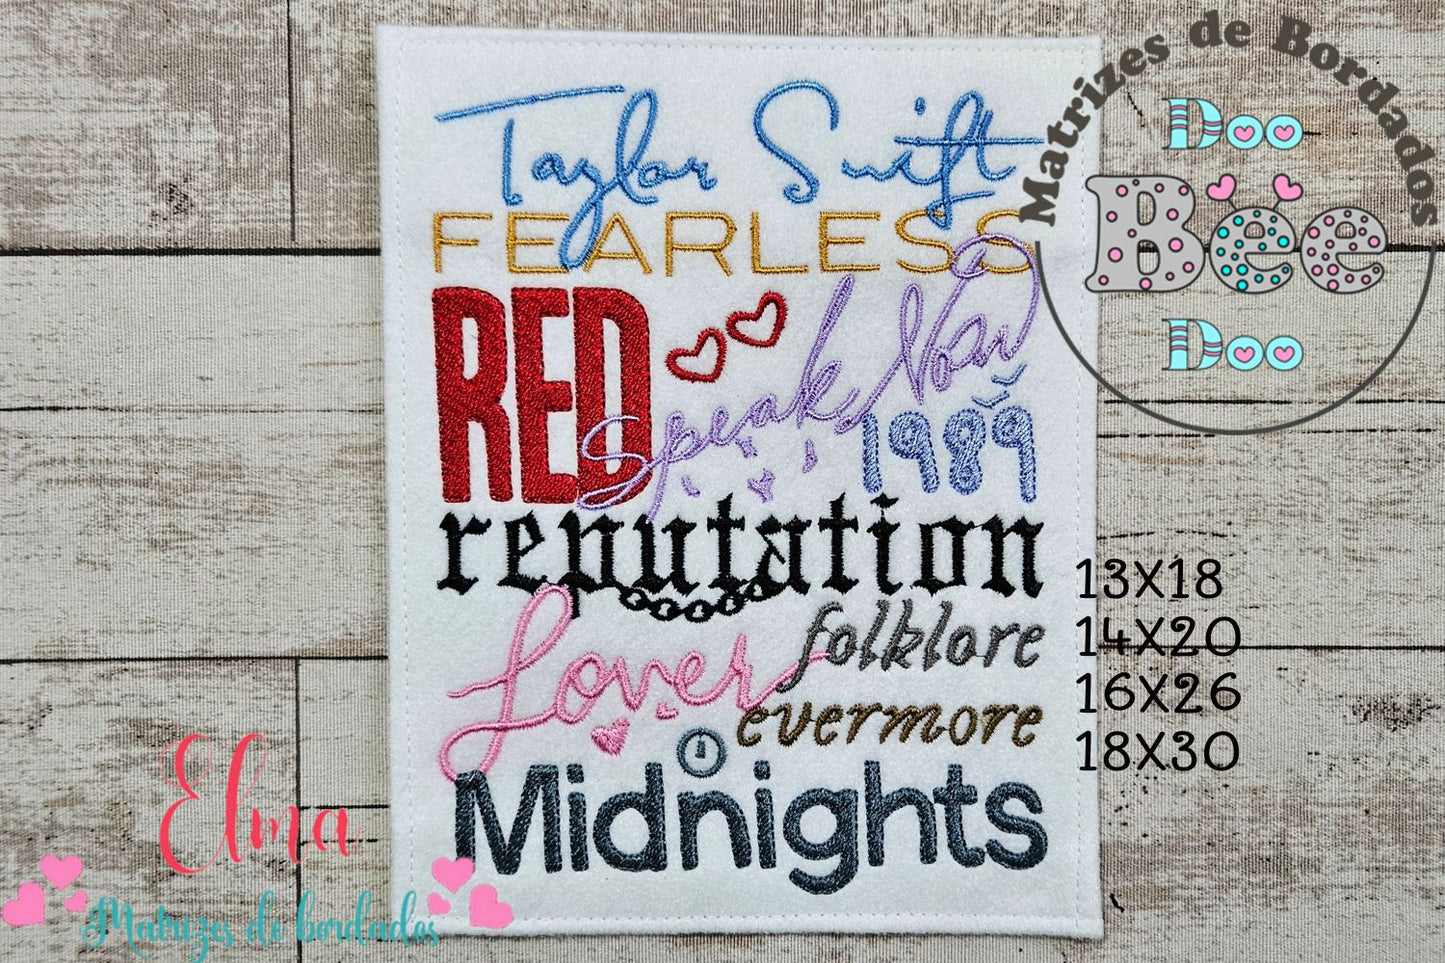 Taylor Swift
FEARLESS
RED
Speak Now
1989
reputation
Lover
folklore
evermore
Midnights
Matrizes de Bordados
Doo
Bee
Doo
13X18
14X20
16X26
18X30
Elma
Matrizes de bordados